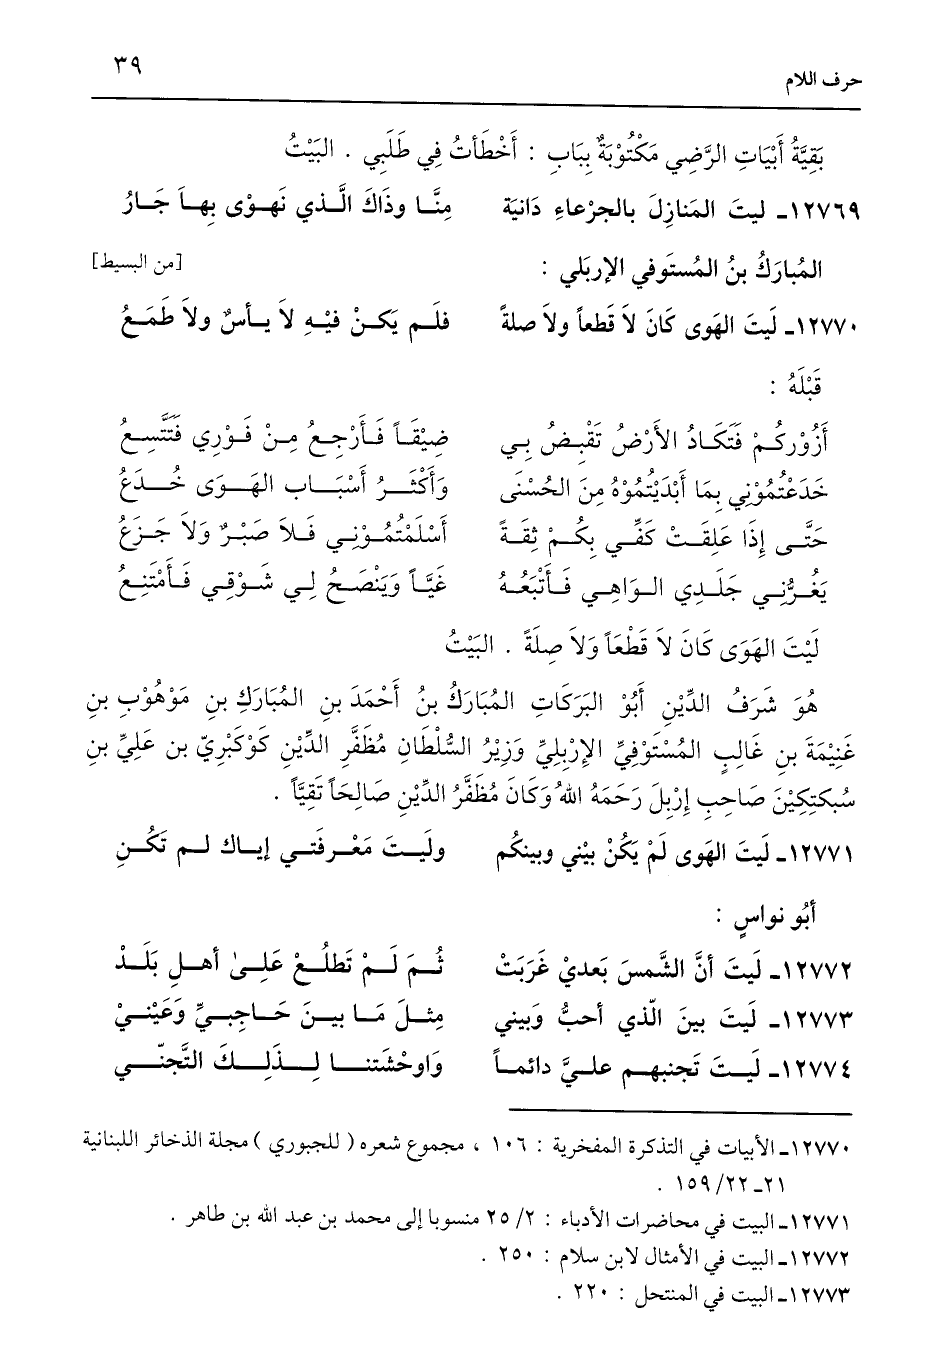 حرف اللام ٣٩
بَقِيَّةُ أَبْيَاتِ الرَّضِي مَكْتُوْبَةٌ بِبَابِ : أَخْطَأتُ فِي طَلَبِي . البَيْتُ
١٢٧٦٩ـ ليتَ المَنازِلَ بالجرْعاءِ دَانيَة مِنَّا وذَاكَ الَّذي نَهوْى بِها جَارُ
المُبارَكُ بنُ المُستَوفي الإربَلي : [من البسيط]
١٢٧٧٠ـ لَيتَ الهَوى كَانَ لاَ قَطعاً ولاَ صلةً فلَم يَكنْ فيْهِ لاَ يأسٌ ولاَ طمَعُ
قَبْلَهُ :
أَزُوْركُمْ فَتَكَادُ الأَرْضُ تَقْبِضُ بِي ضِيْقَاً فَأَرْجِعُ مِنْ فَوْرِي فَتَتَّسِعُ
خَدَعْتُمُوْنِي بِمَا أَبْدَيْتُمُوْهُ مِنَ الحُسْنَى وَأَكْثَرُ أَسْبَابِ الهَوَى خُدَعُ
حَتَّى إِذَا عَلِقَتْ كَفِّي بِكُمْ ثِقَةً أَسْلَمْتُمُوْنِي فَلاَ صَبْرٌ وَلاَ جَزَعُ
يَغُرُّنِي جَلَدِي الوَاهِي فَأَتْبَعُهُ غَيَّاً وَيَنْصَحُ لِي شَوْقِي فَأَمْتَنِعُ
لَيْتَ الهَوَى كَانَ لاَ قَطْعَاً وَلاَ صِلَةً . البَيْتُ
هُوَ شَرَفُ الدِّيْنِ أَبُوْ البَرَكَاتِ المُبَارَكُ بنُ أَحْمَدَ بنِ المُبَارَكِ بنِ مَوْهُوْبِ بنِ
غَنِيْمَةَ بنِ غَالِبٍ المُسْتَوْفِيِّ الإِرْبِلِيِّ وَزِيْرُ السُّلْطَانِ مُظَفَّرِ الدِّيْنِ كَوْكَبْرِيّ بن عَلِيِّ بنِ
سُبكتِكِيْنَ صَاحِبِ إِرْبِلَ رَحَمَهُ اللهُ وَكَانَ مُظَفَّرُ الدِّيْنِ صَالِحَاً تَقِيَّاً .
١٢٧٧١ـ لَيتَ الهَوى لَمْ يَكُنْ بيْني وبينكُم ولَيتَ مَعْرفَتي إياك لم تَكُنِ
أبُو نواسٍ :
١٢٧٧٢ـ لَيتَ أنَّ الشَّمسَ بَعديْ غَرَبَتْ ثُمَ لَمْ تَطلُعْ عَلىٰ أهلِ بَلَدْ
١٢٧٧٣ـ لَيتَ بينَ الّذي أحبُّ وَبيني مِثلَ مَا بينَ حَاجِبيِّ وَعَيْنيْ
١٢٧٧٤ـ لَيتَ تَجنبهم عليَّ دائماً وَاوحْشَتنا لِذَلِكَ التَّجنّي
١٢٧٧٠ـ الأبيات في التذكرة المفخرية : ١٠٦ ، مجموع شعره ( للجبوري ) مجلة الذخائر اللبنانية
٢١ـ٢٢/ ١٥٩ .
١٢٧٧١ـ البيت في محاضرات الأدباء : ٢/ ٢٥ منسوبا إلى محمد بن عبد الله بن طاهر .
١٢٧٧٢ـ البيت في الأمثال لابن سلام : ٢٥٠ .
١٢٧٧٣ـ البيت في المنتحل : ٢٢٠ .